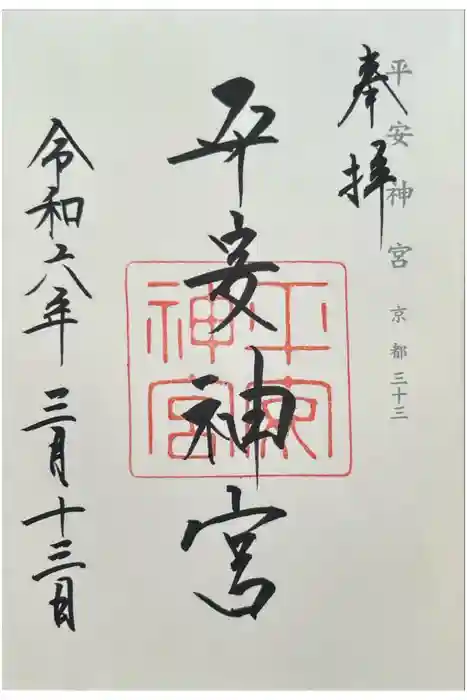 平安神宮 京都三十三
奉拝
平安神宮
平安神宮
令和六年 三月十三日